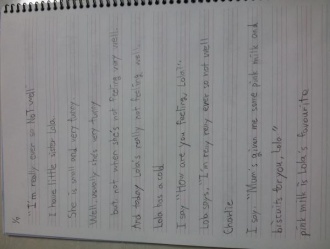 I'm really ever so not well
I have little sister Lola.
She is small and very funny
Well, nearly she's very funny
but not when she's not feeling very well.
And today Lola's really not feeling well
Lola has a cold
I say "How are you feeling, Lola?"
Lola says, I'm very very ever so not well
Charlie
I say "Mum's given me some pink milk and
biscuits for you, Lola"
pink milk is Lola's favourite